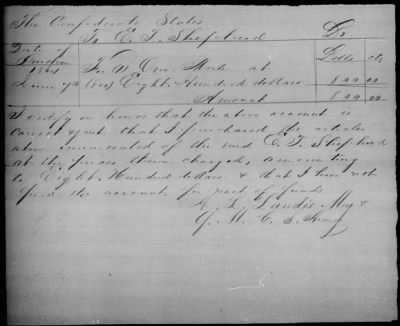 The Confederate States
To E. T. Shepherd Dr
Date of Purchase 1864 Dolls cts
June 7th For One Mule at
(800) Eight Hundred dollars 800 00
Amount 800 00
I certify on honor that the above account is
correct & just that I purchased the articles
above enumerated of the said E. T. Shepherd
at the prices therein charged, amounting
to Eight Hundred dollars & that I have not
paid the account for want of funds
A. L. Landis Maj &
Q. M. C. S. Army